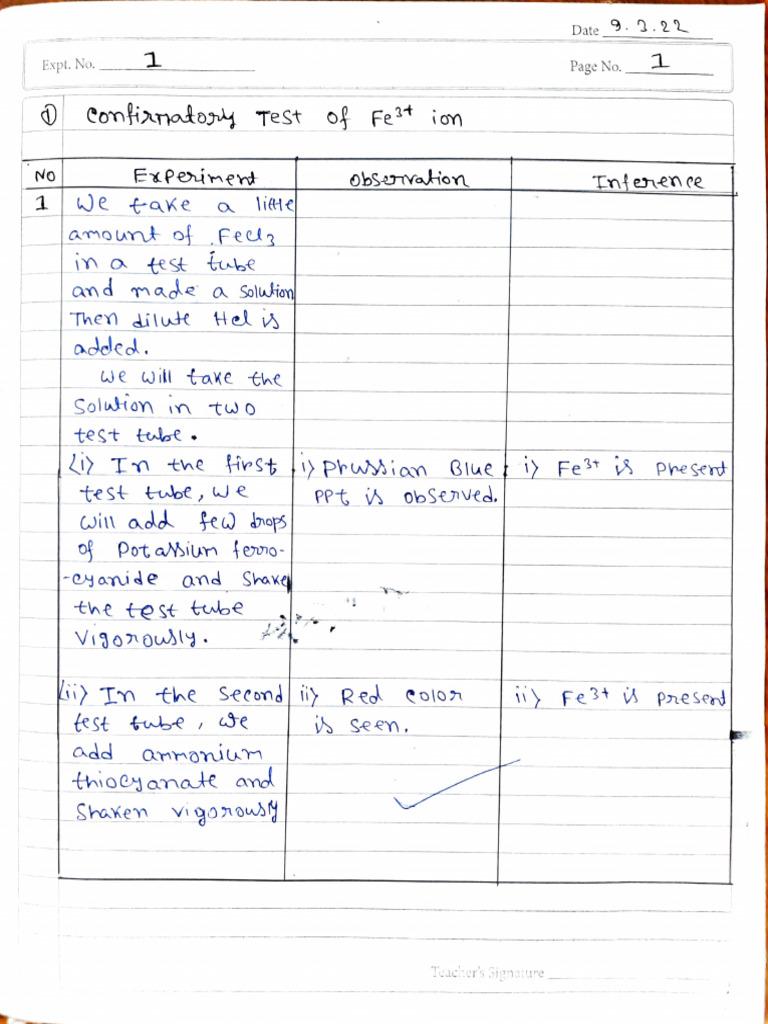 Date 9.3.22
Expt. No. 1
Page No. 1
① Confirmatory Test of Fe³⁺ ion
NO Experiment Observation Inference
1 We take a little
amount of FeCl₃
in a test tube
and made a solution
Then dilute Hcl is
added.
We will take the
Solution in two
test tube.
(i) In the first i) Prussian Blue i) Fe³⁺ is present
test tube, we PPt is observed.
will add few drops
of Potassium ferro-
-cyanide and Shake
the test tube
vigorously.
(ii) In the second ii) Red color ii) Fe³⁺ is present
test tube, we is seen.
add ammonium
thiocyanate and
Shaken vigorously
Teacher's Signature